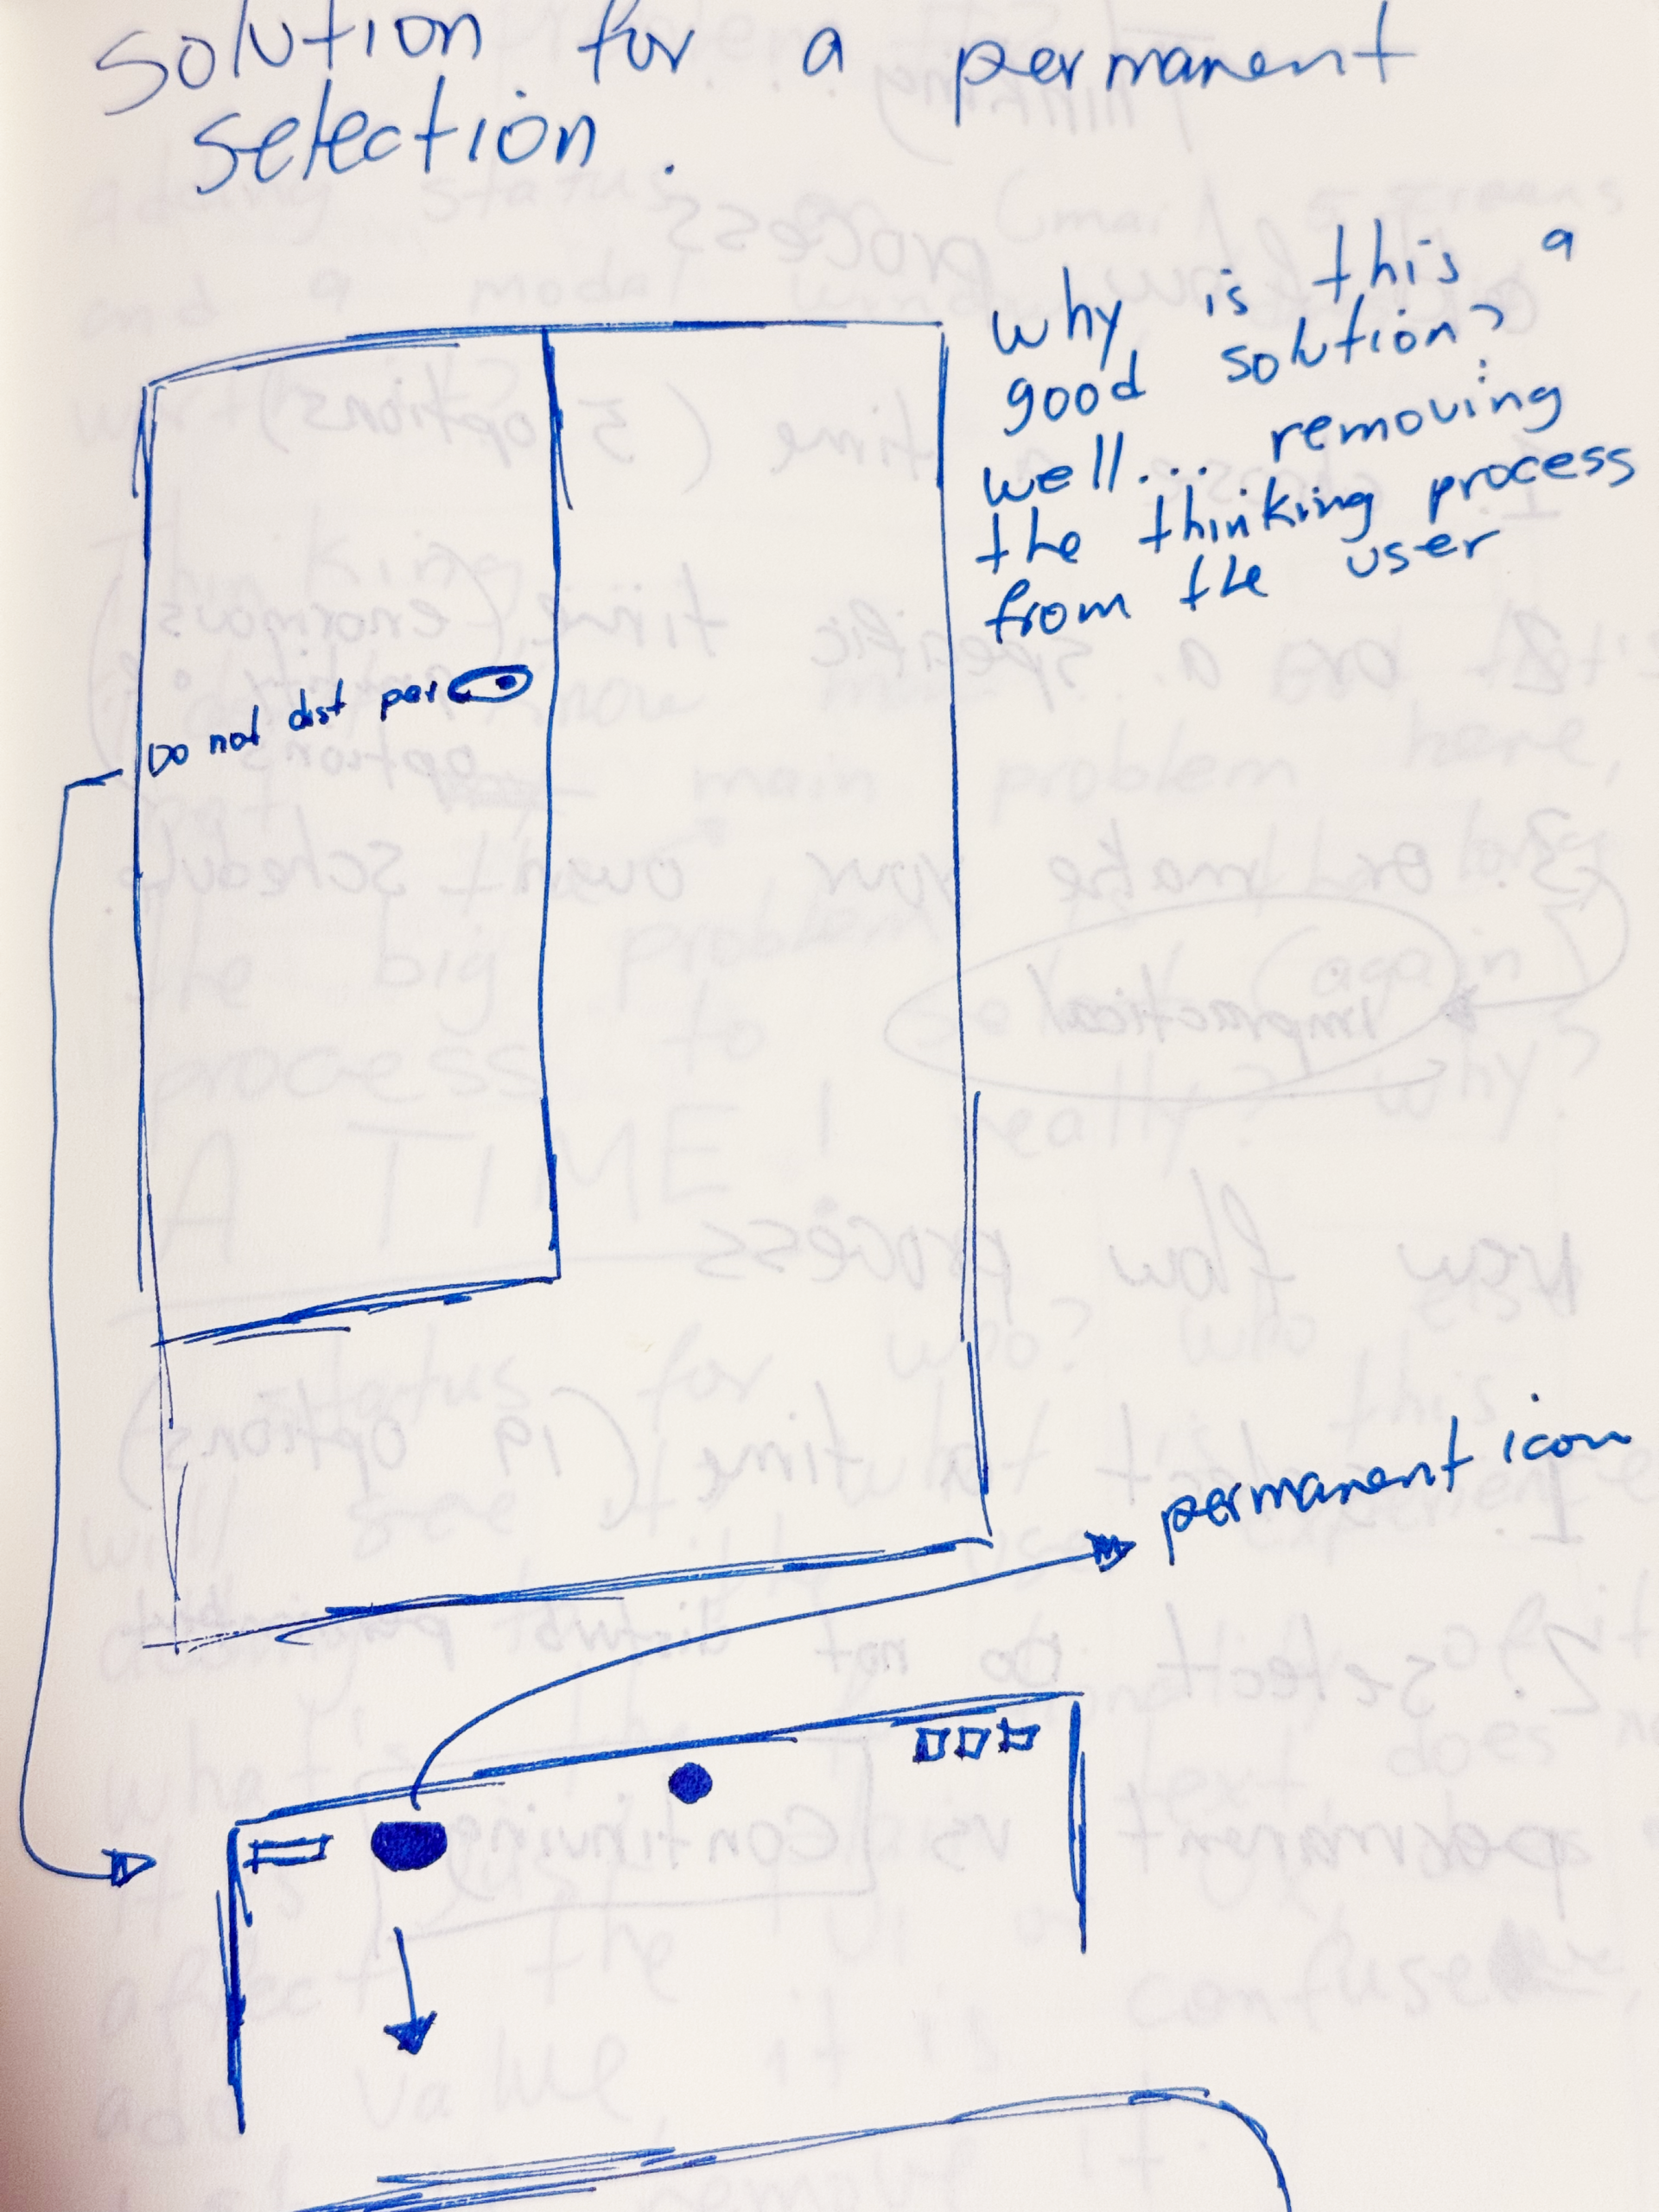 solution for a permanent
selection.
why is this a
good solution?
well... removing
the thinking process
from the user
Do not dist per
permanent icon